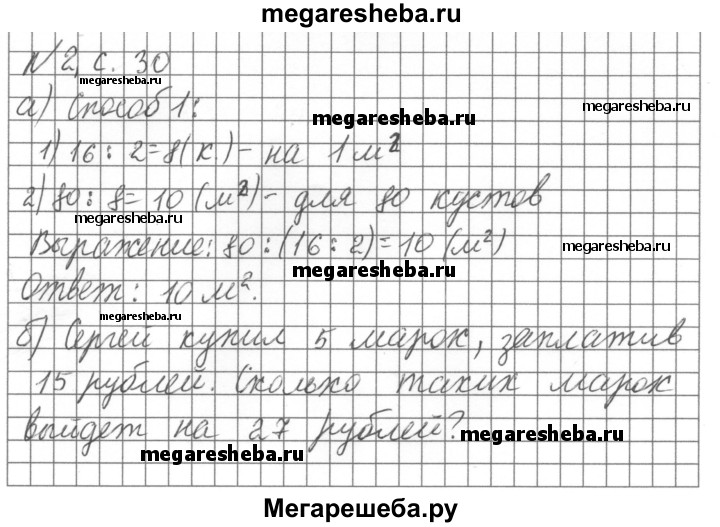 megaresheba.ru
N 2, с. 30
megaresheba.ru
а) Способ 1:
megaresheba.ru
megaresheba.ru
1) 16 : 2 = 8 (к.) - на 1 м²
2) 80 : 8 = 10 (м²) - для 80 кустов
megaresheba.ru
Выражение: 80 : (16 : 2) = 10 (м²)
megaresheba.ru
megaresheba.ru
Ответ: 10 м².
megaresheba.ru
б) Сергей купил 5 марок, заплатив
15 рублей. Сколько таких марок
выйдет на 27 рублей?
megaresheba.ru
megaresheba.ru
Мегарешеба.ру